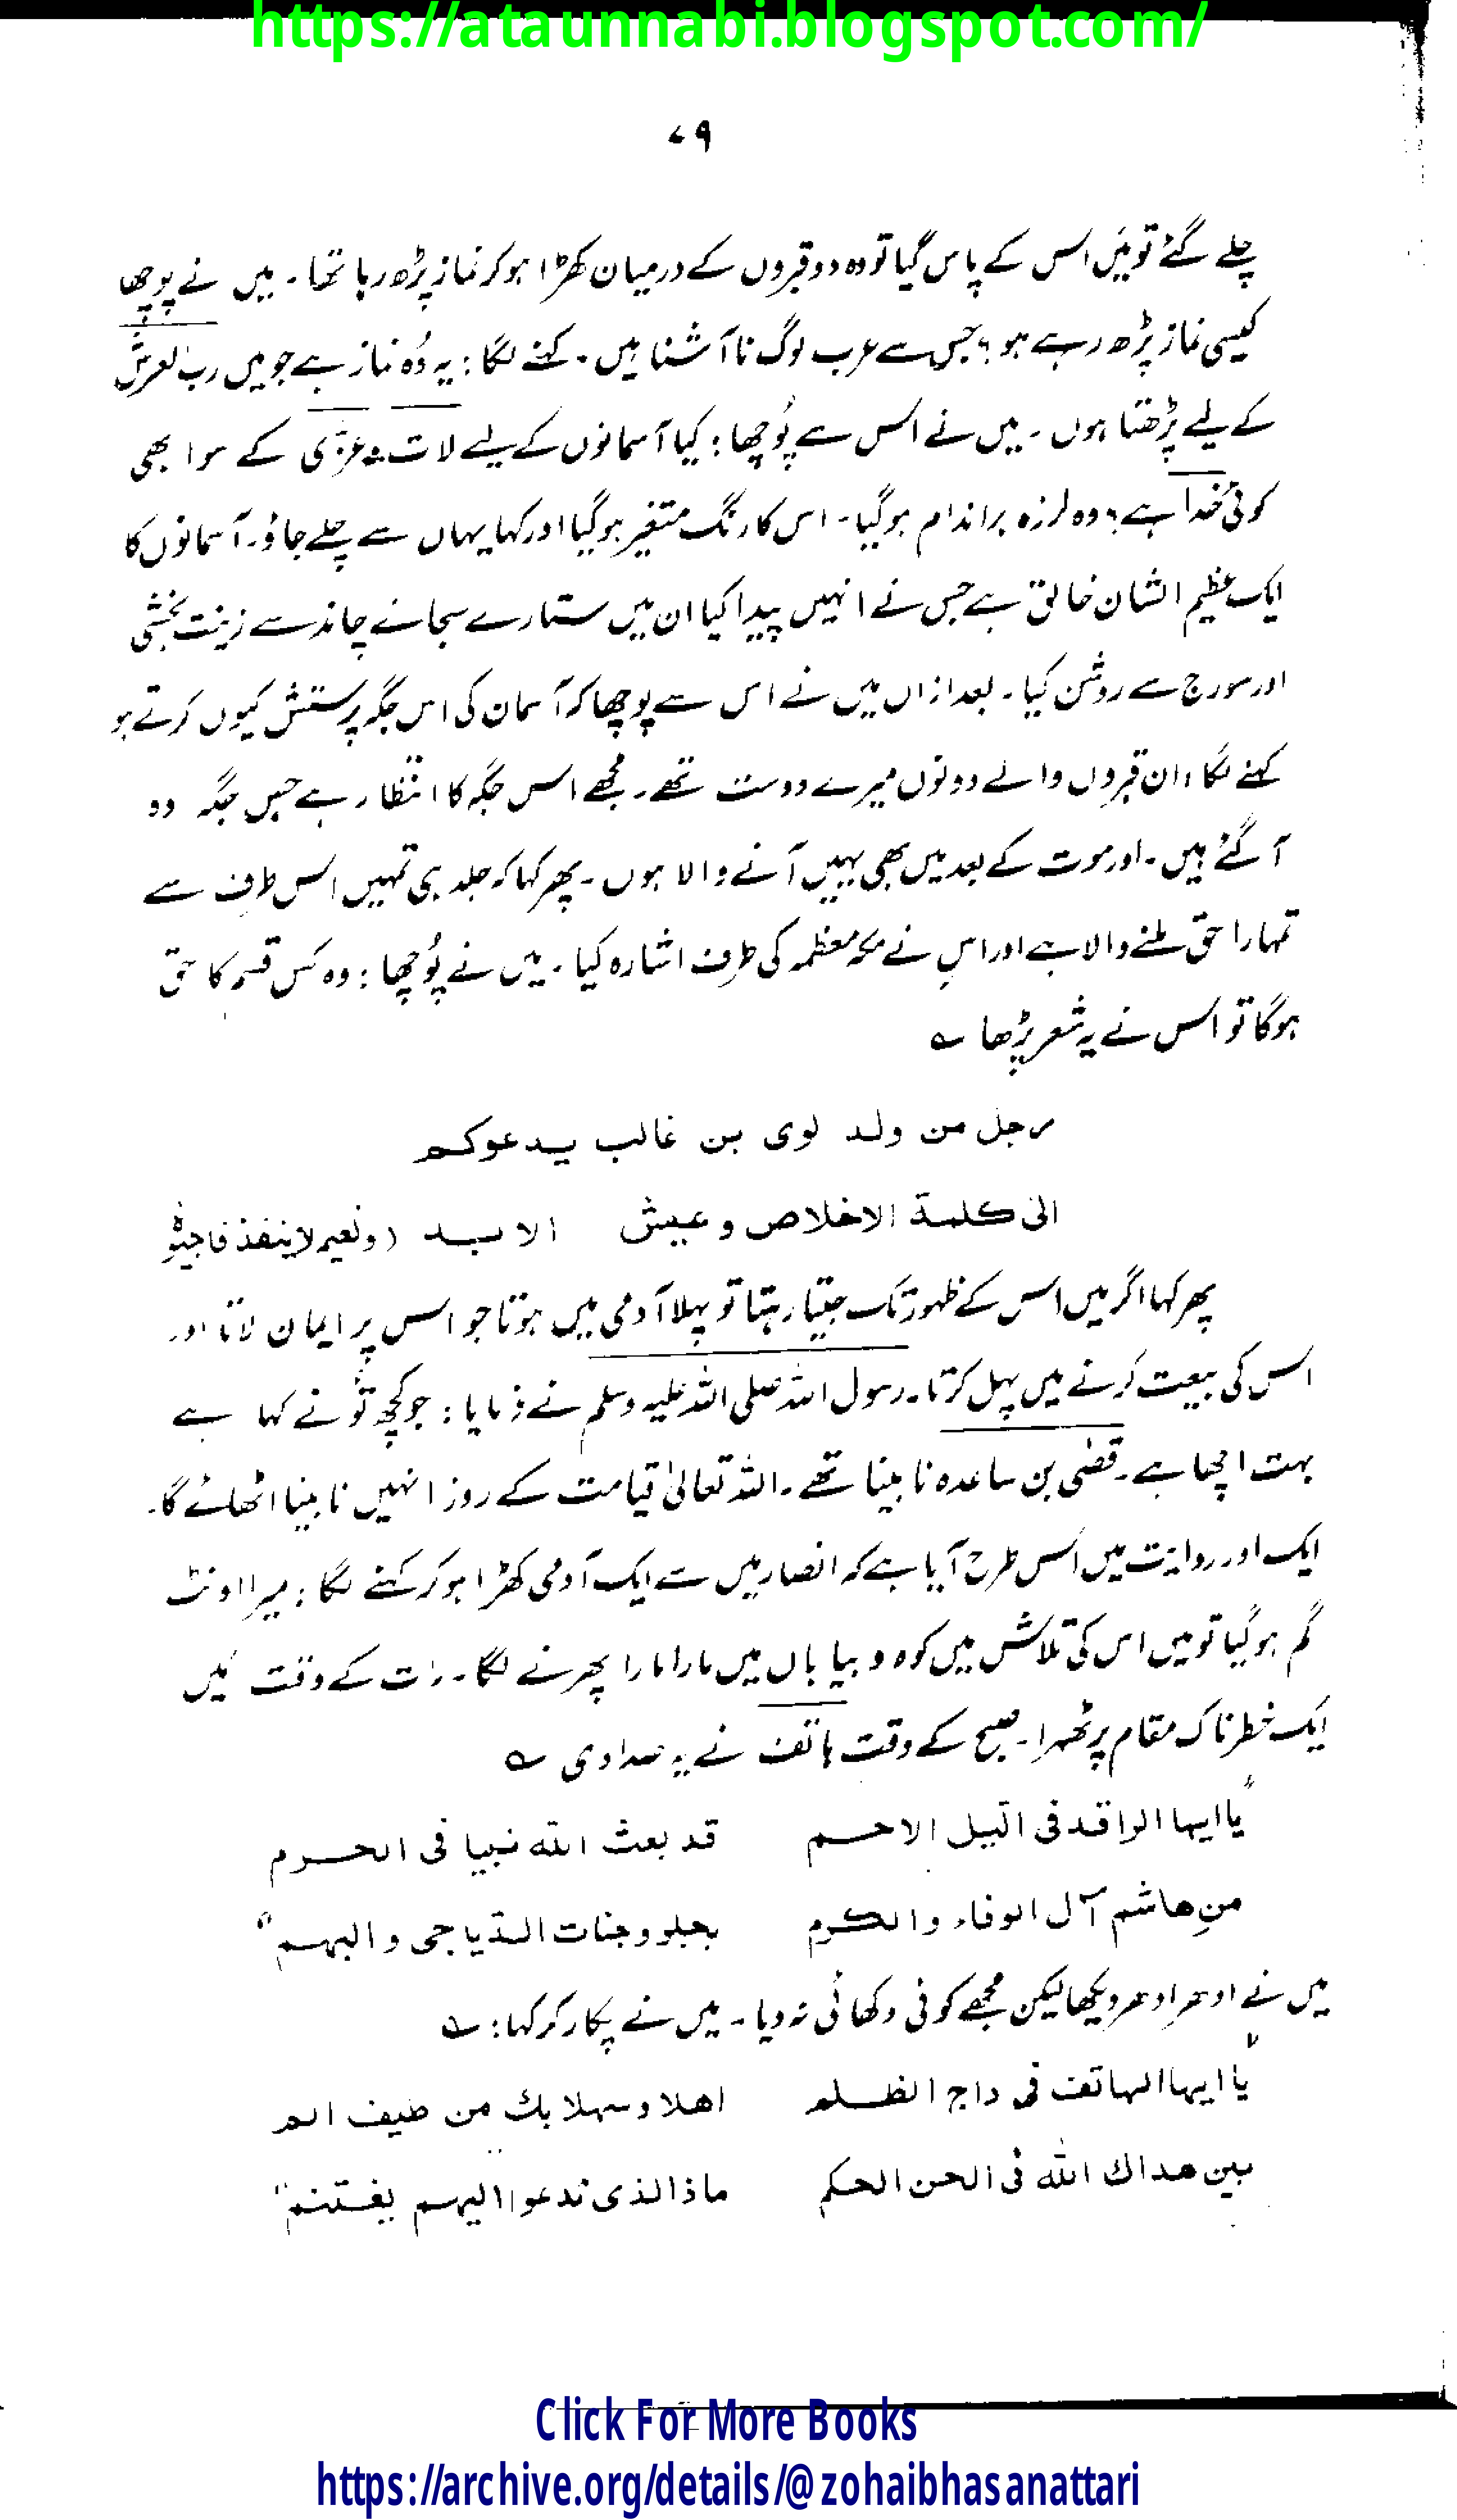 https://ataunnabi.blogspot.com/
۷۹
چلے گئے تو میَں اس کے پاس گیا تو وہ دو قبروں کے درمیان کھڑا ہو کر نماز پڑھ رہا تھا۔ میں نے پوچھا
کیسی نماز پڑھ رہے ہو؟ جس سے عرب لوگ ناآشنا ہیں۔ کہنے لگا: یہ وُہ نماز ہے جو میں رب العرش
کے لیے پڑھتا ہوں۔ میں نے اس سے پُوچھا: کیا آسمانوں کے لیے لات و عزّٰی کے سوا بھی
کوئی خُدا ہے؟ وہ لرزہ براندام ہوگیا۔ اس کا رنگ متغیر ہوگیا اور کہا یہاں سے چلے جاؤ۔ آسمانوں کا
ایک عظیم الشان خالق ہے جس نے انہیں پیدا کیا ان میں ستارے سجائے چاند سے زینت بخشی
اور سورج سے روشن کیا۔ بعد ازاں میں نے اس سے پوچھا کہ آسمان کی اس جگہ پرستش کیوں کرتے ہو
کہنے لگا: ان قبروں والے دونوں میرے دوست تھے۔ مجھے اس جگہ کا انتظار ہے جس جگہ وہ
آ گئے ہیں۔ اور موت کے بعد میں بھی یہیں آنے والا ہوں۔ پھر کہا کہ جلد ہی تمہیں اس طرف سے
تمہارا حق ملنے والا ہے اور اس نے مکہ معظمہ کی طرف اشارہ کیا۔ میں نے پُوچھا: وہ کس قسم کا حق
ہوگا تو اس نے یہ شعر پڑھا ؎
رجل من ولد لوی بن غالب یدعوکم
الیٰ کلمة الاخلاص و عیش الابد (و نعیم لا ینفذ فاجیبوہ
پھر کہا اگر میں اس کے ظہور تک جیتا رہتا تو پہلا آدمی میں ہوتا جو اس پر ایمان لاتا اور
اس کی بیعت کرنے میں پہل کرتا۔ رسول اللہ صلی اللہ علیہ وسلم نے فرمایا: جو کچھ تُو نے کہا ہے
بہت اچھا ہے۔ قضی بن ساعدہ نابینا تھے۔ اللہ تعالیٰ قیامت کے روز انہیں نابینا اٹھائے گا۔
ایک اور روایت میں اس طرح آیا ہے کہ انصار میں سے ایک آدمی کھڑا ہو کر کہنے لگا: میرا اونٹ
گم ہوگیا تو میں اس کی تلاش میں کوہ و بیاباں میں مارا مارا پھرنے لگا۔ رات کے وقت میَں
ایک خطرناک مقام پر ٹھہرا۔ صبح کے وقت ہاتف نے یہ صدا دی ؎
"یا ایها الراقد فی الّیل الاحم قد بعث الله نبیا فی الحرم
من هاشم آل الوفاء والکرم یجلو وجنات الدّیاجی والبهم"
میں نے ادھر ادھر دیکھا لیکن مجھے کوئی دکھائی نہ دیا۔ میں نے پکار کر کہا: ؎
"یا ایها الهاتف فی داج الظلم اهلا و سهلا بك من طیف الم
بین هداك الله فی الحن الحکم ماذا الذی تدعوا الیهم یغتنم"
Click For More Books
https://archive.org/details/@zohaibhasanattari